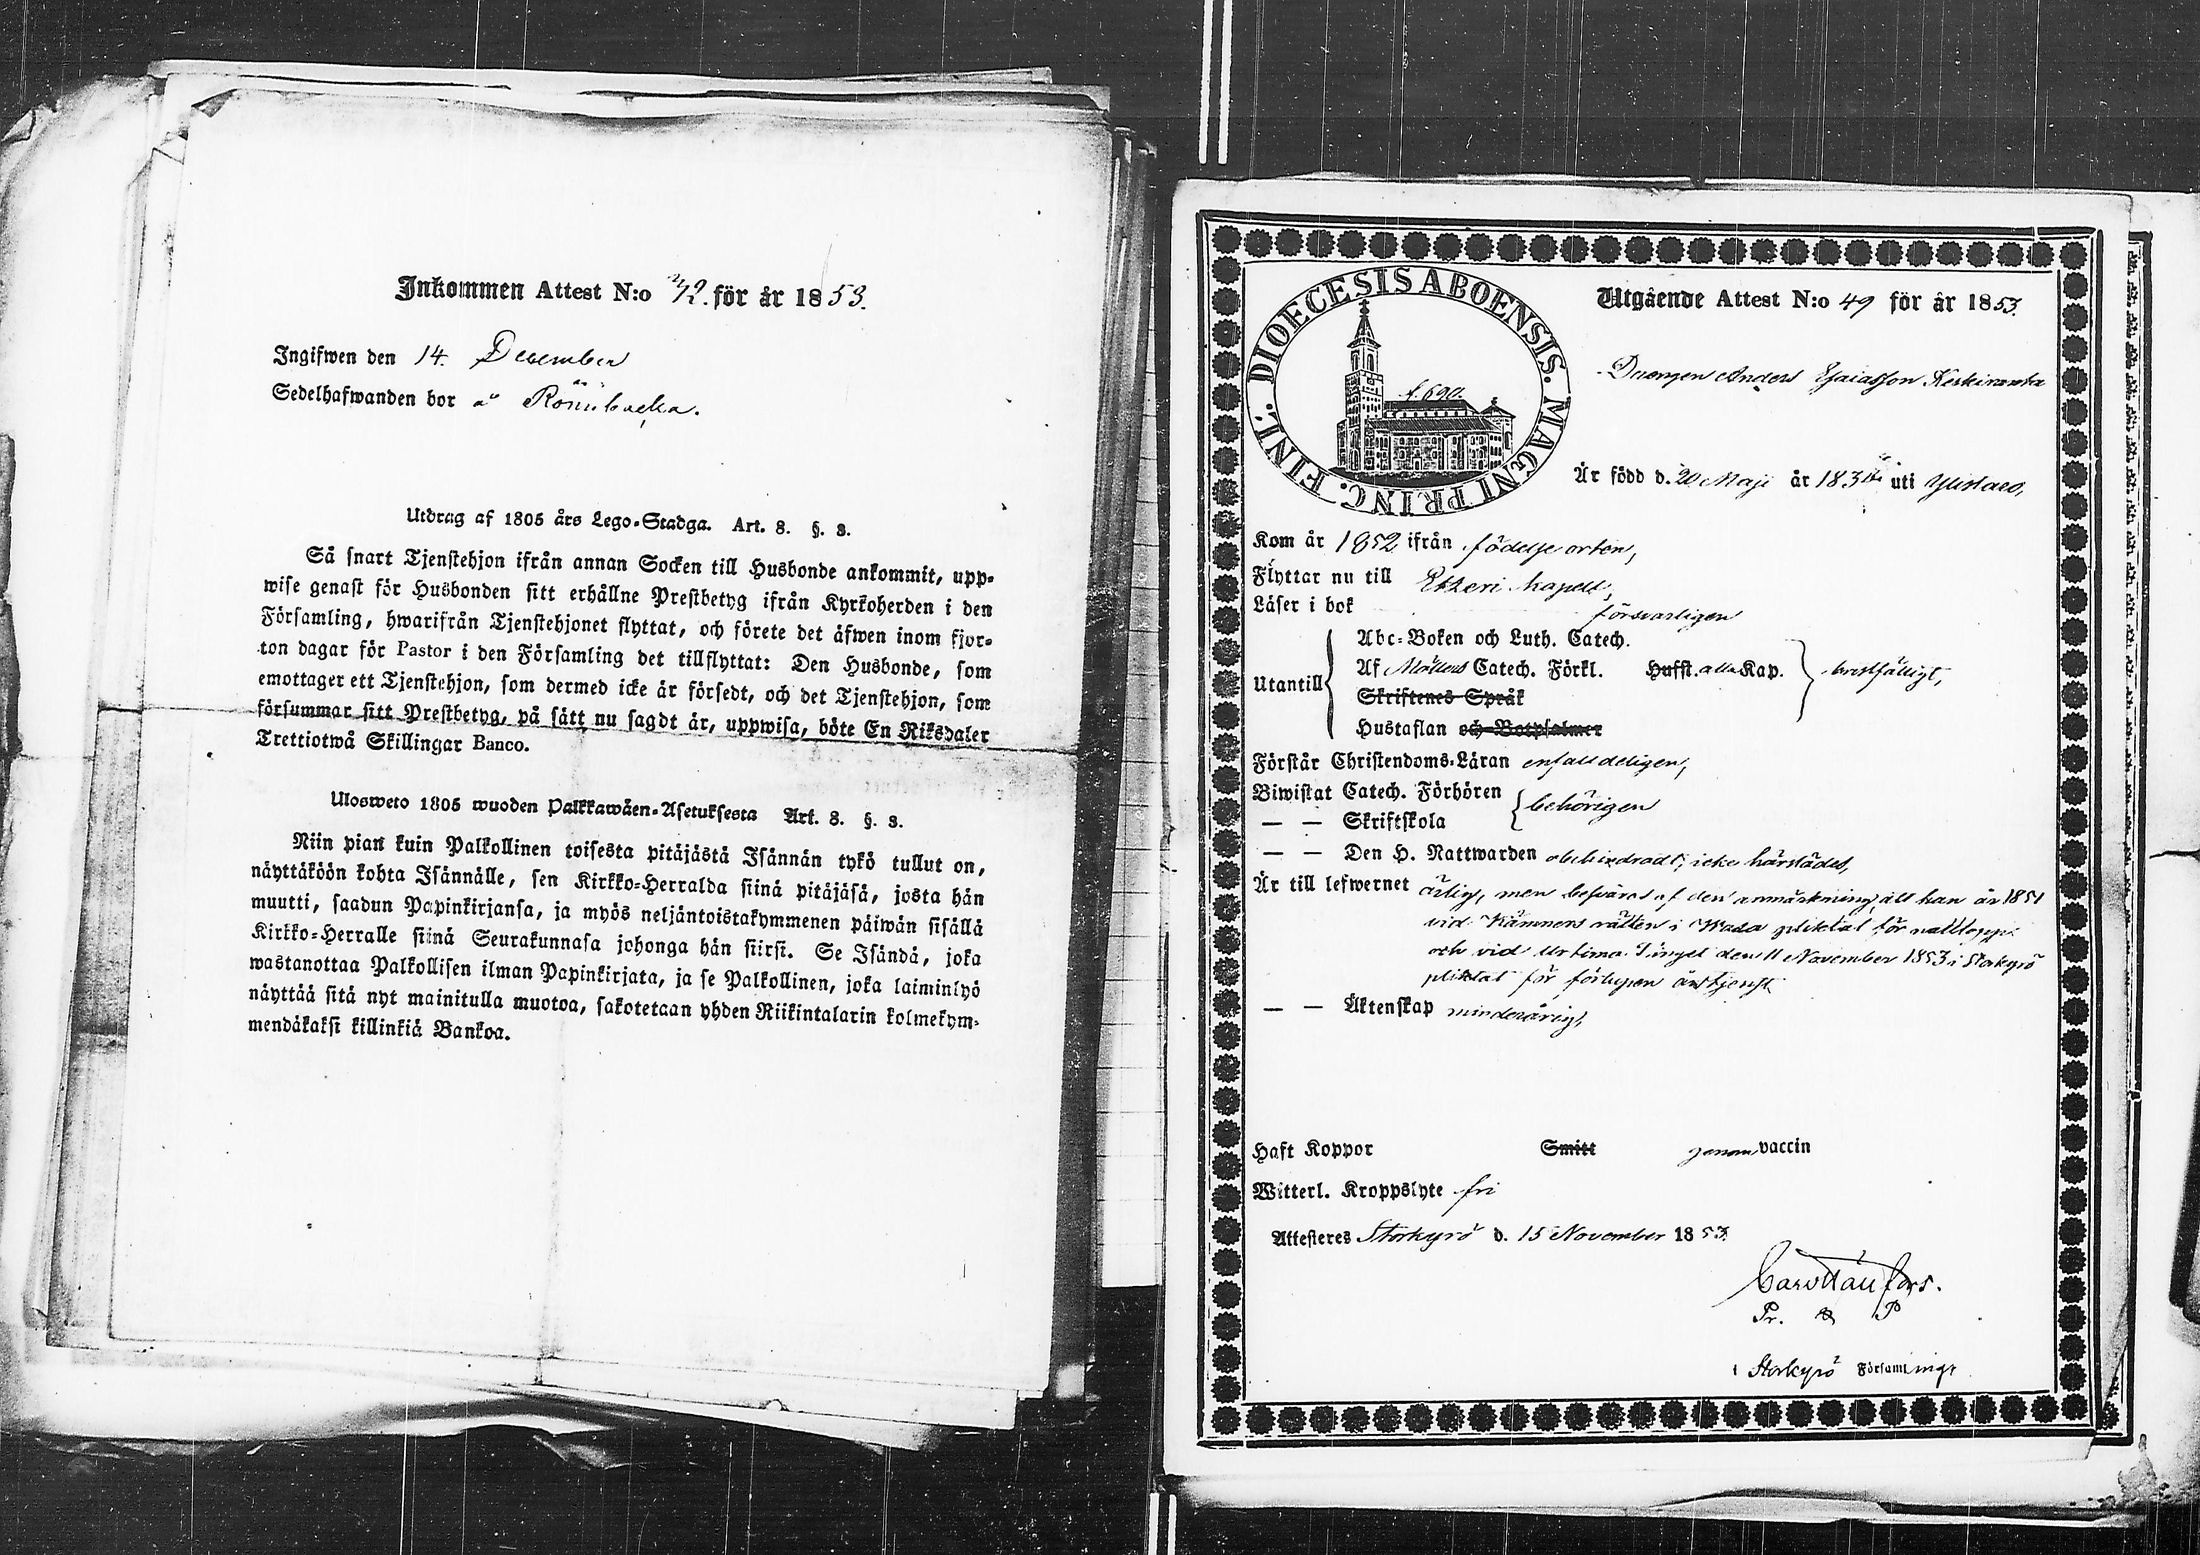 Inkommen Attest N:o 72. för år 1853.
Ingifwen den 14. December
Sedelhafwanden bor å Rönnbacka.
Utdrag af 1805 års Lego-Stadga. Art. 8. §. 3.
Så snart Tjenstehjon ifrån annan Socken till Husbonde ankommit, upp-
wise genast för Husbonden sitt erhållne Prestbetyg ifrån Kyrkoherden i den
Församling, hwarifrån Tjenstehjonet flyttat, och förete det äfwen inom fjor-
ton dagar för Pastor i den Församling det tillflyttat: Den Husbonde, som
emottager ett Tjenstehjon, som dermed icke är försedt, och det Tjenstehjon, som
försummar sitt Prestbetyg, på sätt nu sagdt är, uppwisa, böte En Riksdaler
Trettiotwå Skillingar Banco.
Ulosweto 1805 wuoden Palkkawäen-Asetuksesta Art. 8. §. 3.
Niin pian kuin Palkollinen toisesta pitäjästä Isännän tykö tullut on,
näyttäköön kohta Isännälle, sen Kirkko-Herralda siinä pitäjäsä, josta hän
muutti, saadun Papinkirjansa, ja myös neljäntoistakymmenen päiwän sisällä
Kirkko-Herralle siinä Seurakunnasa johonga hän siirsi. Se Isändä, joka
wastanottaa Palkollisen ilman Papinkirjata, ja se Palkollinen, joka laiminlyö
näyttää sitä nyt mainitulla muotoa, sakotetaan yhden Riikintalarin kolmekym-
mendäkaksi killinkiä Bankoa.
DIOECESIS ABOENSIS. MAGNI PRINC. FINL.
f. 690.
Utgående Attest N:o 49 för år 1853.
Drengen Anders Esaiasson Keskiranta
Är född d. 20 Maji år 183 uti Ylistaro,
Kom år 1852 ifrån födelse orten,
Flyttar nu till Etseri kapell,
Läser i bok försvarligen
Utantill
Abc-Boken och Luth. Catech.
Af Möllers Catech. Förkl. Hufst. alla Kap. bristfälligt,
Skriftenes Språk
Hustaflan och Botpsalmer
Förstår Christendoms-Läran enfalldeligen,
Biwistat Catech. Förhören
— — Skriftskola
behörigen
— — Den H. Nattwarden obehindradt, icke härstädes,
Är till lefwernet ärlig, men besväras af den anmärkning, att han år 1851
vid Kämners rätten i Wasa pliktat för nattlopp
och vid Urtima Tinget den 11 November 1853 i Storkyrö
pliktat för förlupen årstjenst
— — Äktenskap minderårig,
Haft Koppor Smitt genom vaccin
Witterl. Kroppslyte fri
Attesteres Storkyrö d. 15 November 1853.
Pr. & P
i Storkyrö Församlings